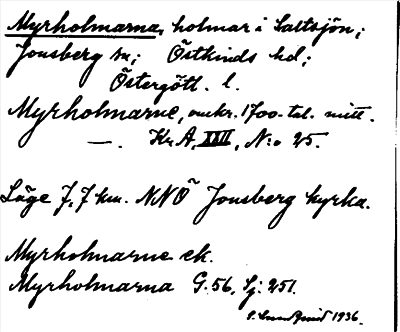 Myrholmarna, holmar i Saltsjön;
Jonsberg sn; Östkinds hd;
Östergötl. l.
Myrholmarne, omkr. 1700-tal. mitt.
—. Kr. A, XXII, N:o 25.
Läge 7,7 km. NNÖ Jonsberg kyrka.
Myrholmarne ek.
Myrholmarna G. 56, Sj: 251.
1936.